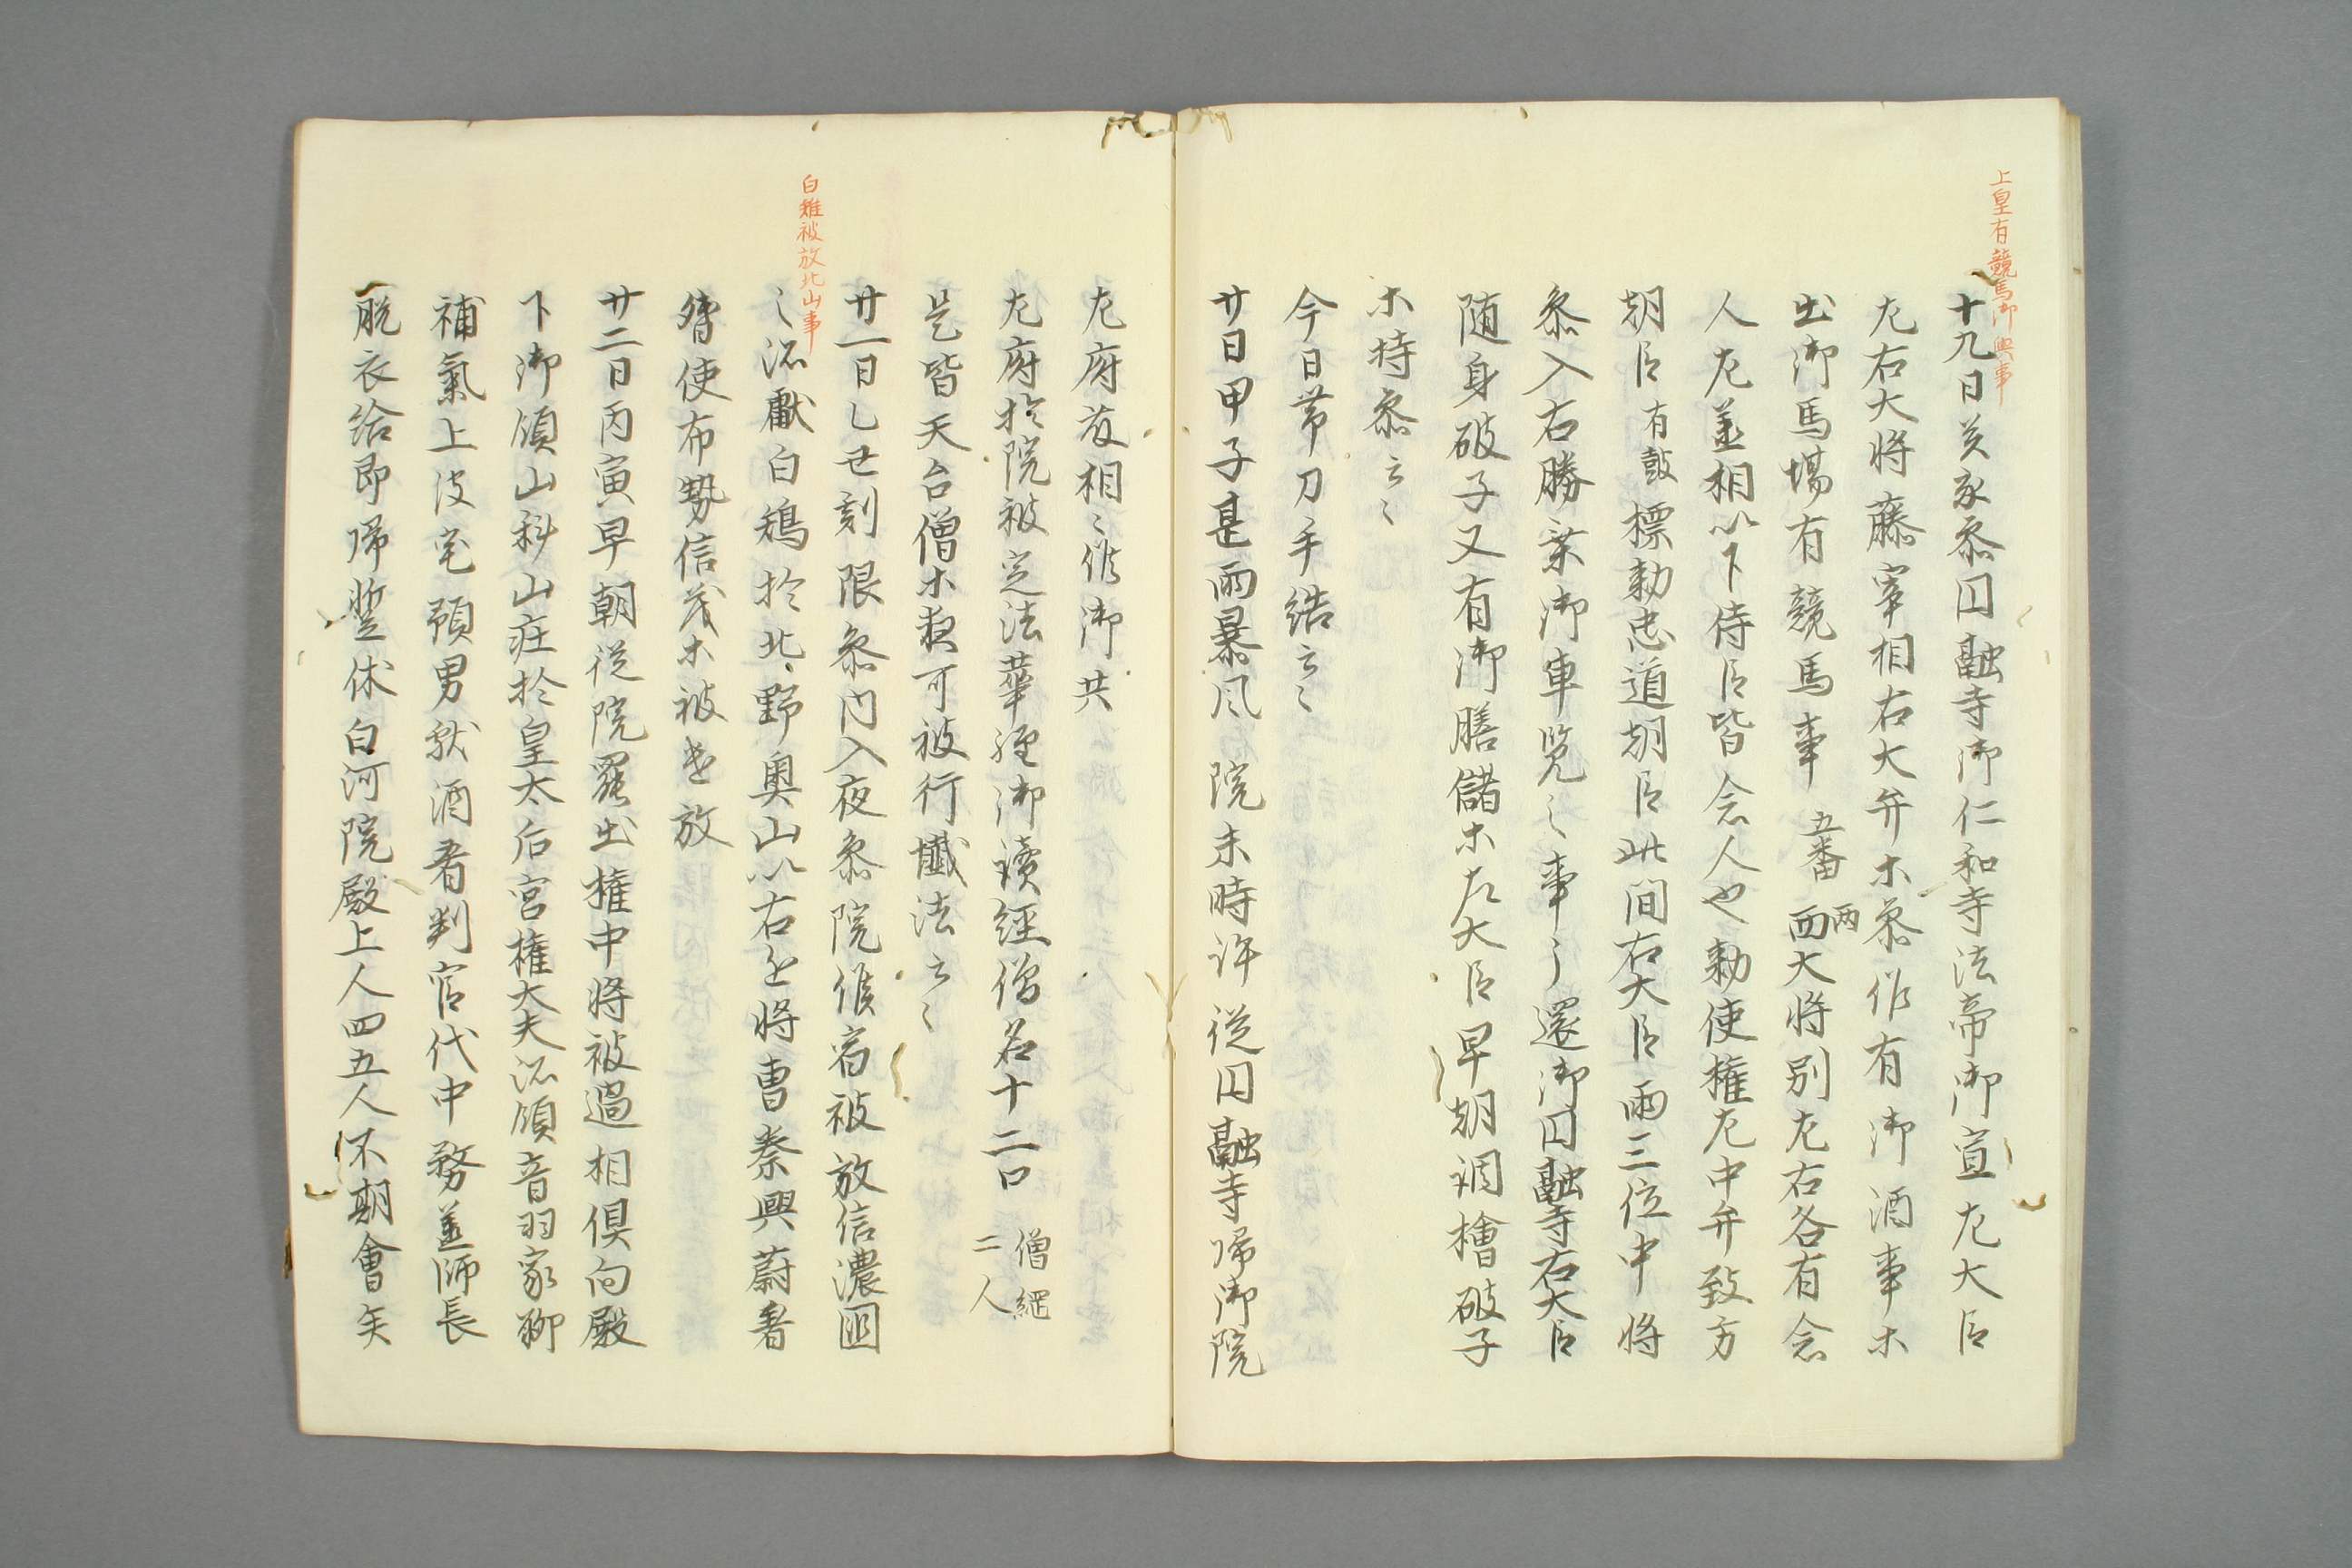 上皇有競馬御興事
十九日癸亥参円融寺御仁和寺法帝御宣左大臣
左右大将藤宰相右大弁木参作有御酒事木
出御馬場有競馬事五番両面大将別左右各有念
人左並相以下侍臣皆念人也勅使権左中弁致方
朝臣有鼓標勅忠道朝臣此間右大臣両三位中将
参入右勝乗御車覧〻事了還御円融寺右大臣
随身破子又有御膳儲木左大臣早朝調檜破子
木持参云〻
今日帯刀手結云〻
廿日甲子甚雨暴風院未時許従円融寺帰御院
左府及相〻候御共
左府於院被定法華経御読経僧名十二口僧綱二人
是皆天台僧木夜可被行懺法云〻
白雉被放北山事
廿一日乙丑刻限参内入夜参院候宿被放信濃国
〻所献白鵄於北野奥山以右近将曹秦興蔚看
督使布勢信茂木被遣放
廿二日丙寅早朝従院罷出権中将被過相倶向殿
下御領山科山庄於皇太后宮権大夫所領音羽家聊
補気上没宅預男献酒肴判官代中務並師長
脱衣給即帰蹔休白河院殿上人四五人不期会矣